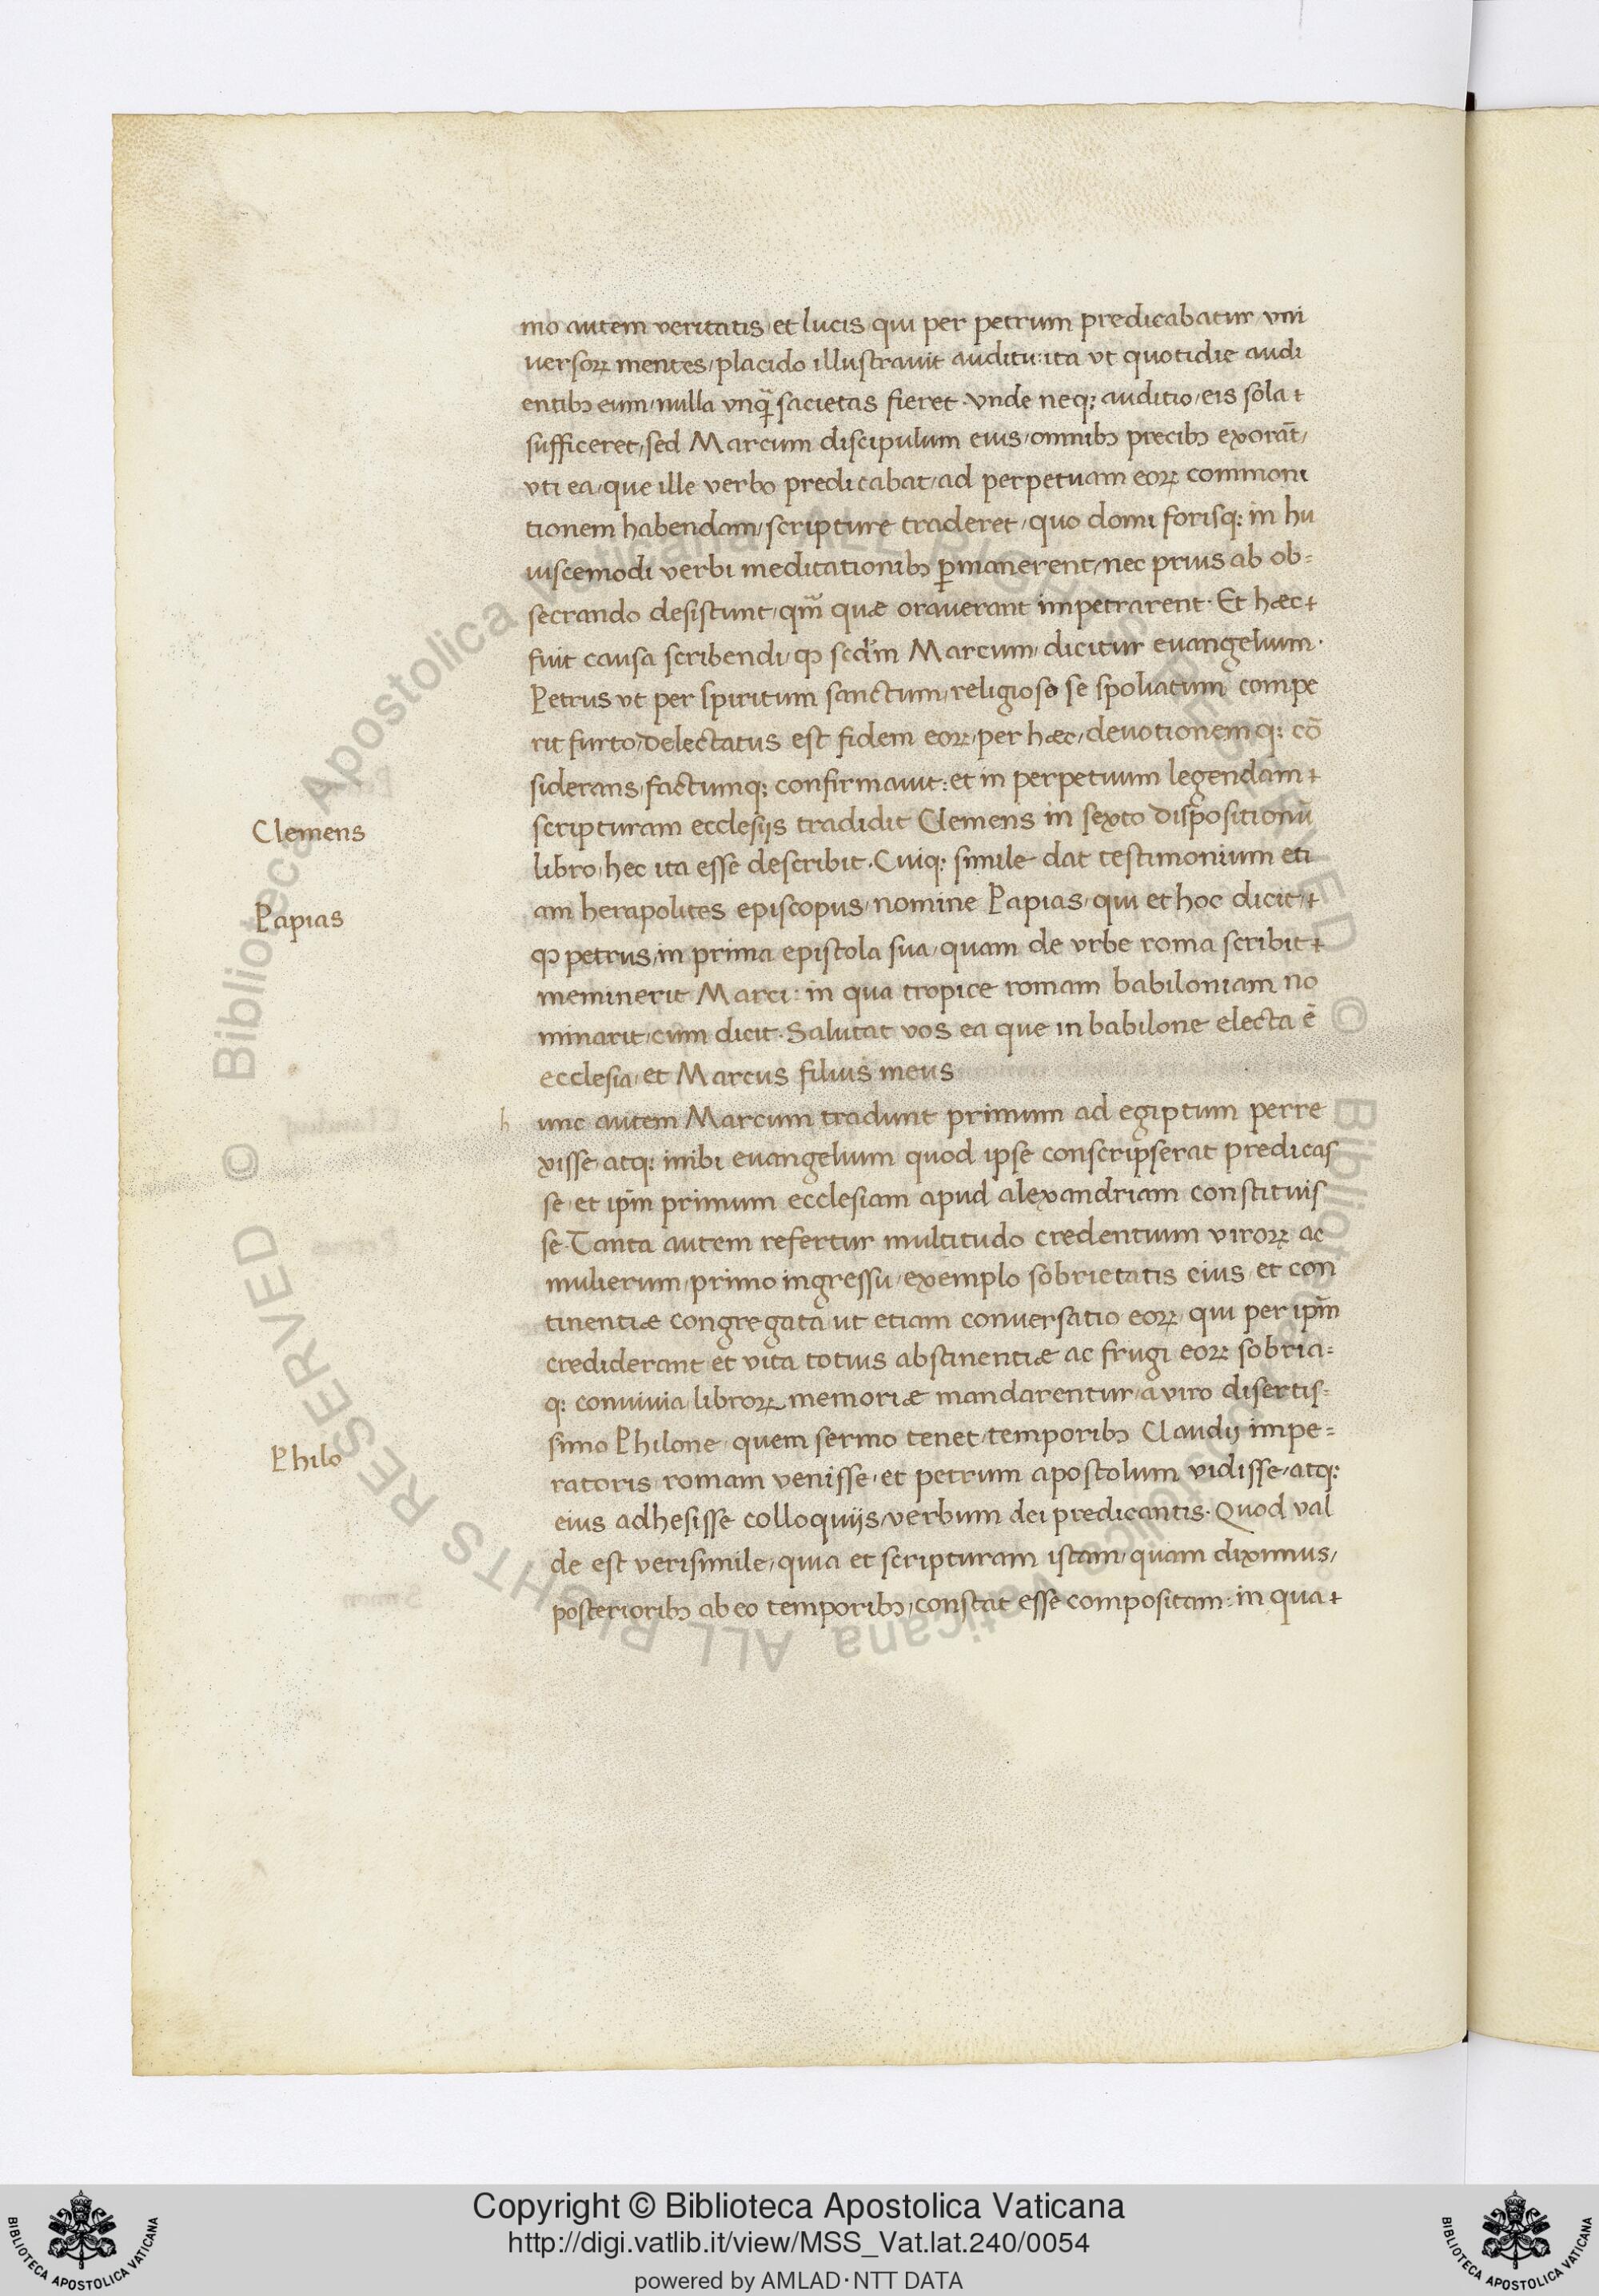 mo autem veritatis et lucis qui per petrum predicabatur vni
uersoꝝ mentes/placido illustrauit auditu: ita vt quotidie audi
entibꝫ eum/nulla vnq̃ sacietas fieret. vnde neqꝫ auditio/eis sola
sufficeret/sed Marcum discipulum eius/omnibꝫ precibꝫ exorãt/
vti ea/que ille verbo predicabat/ad perpetuam eoꝝ commoni
tionem habendam/scripture traderet/quo domi forisqꝫ in hu
iuscemodi verbi meditationibꝫ ꝑmanerent/nec prius ab ob=
secrando desistunt/qm̃ quæ orauerant impetrarent. Et hæc
fuit causa scribendi/ꝙ scd̃m Marcum/dicitur euangelium.
Petrus vt per spiritum sanctum/religioso se spoliatum compe
rit furto/delectatus est fidem eoꝝ/per hæc/deuotionemqꝫ cõ
siderans/factumqꝫ confirmauit: et in perpetuum legendam
scripturam ecclesijs tradidit Clemens in sexto dispositionũ
libro/hec ita esse describit. Cuiqꝫ simile dat testimonium eti
am herapolites episcopus/nomine Papias/qui et hoc dicit/
ꝙ petrus/in prima epistola sua/quam de vrbe roma scribit
meminerit Marci: in qua tropice romam babiloniam no
minarit/cum dicit. Salutat vos ea que in babilone electa ẽ
ecclesia/et Marcus filius meus
h unc autem Marcum tradunt primum ad egiptum perre
xisse atqꝫ inibi euangelium quod ipse conscripserat predicas
se/et ip̃m primum ecclesiam apud alexandriam constituis
se. Tanta autem refertur multitudo credentium viroꝝ ac
mulierum/primo ingressu/exemplo sobrietatis eius et con
tinentiæ congregata ut etiam conuersatio eoꝝ/qui per ip̃m
crediderant et vita totius abstinentiæ ac frugi eoꝝ sobria=
qꝫ conuiuia/libroꝝ memoriæ mandarentur/a viro disertis=
simo Philone/quem sermo tenet/temporibꝫ Claudij impe=
ratoris romam venisse/et petrum apostolum vidisse/atqꝫ
eius adhesisse colloquijs/verbum dei predicantis. Quod val
de est verisimile/quia et scripturam istam/quam diximus/
posterioribꝫ ab eo temporibꝫ/constat esse compositam: in qua
Clemens
Papias
Philo
© Biblioteca Apostolica Vaticana ALL RIGHTS RESERVED
© Biblioteca Apostolica Vaticana ALL RIGHTS RESERVED
Copyright © Biblioteca Apostolica Vaticana
http://digi.vatlib.it/view/MSS_Vat.lat.240/0054
powered by AMLAD·NTT DATA
BIBLIOTECA APOSTOLICA VATICANA
BIBLIOTECA APOSTOLICA VATICANA